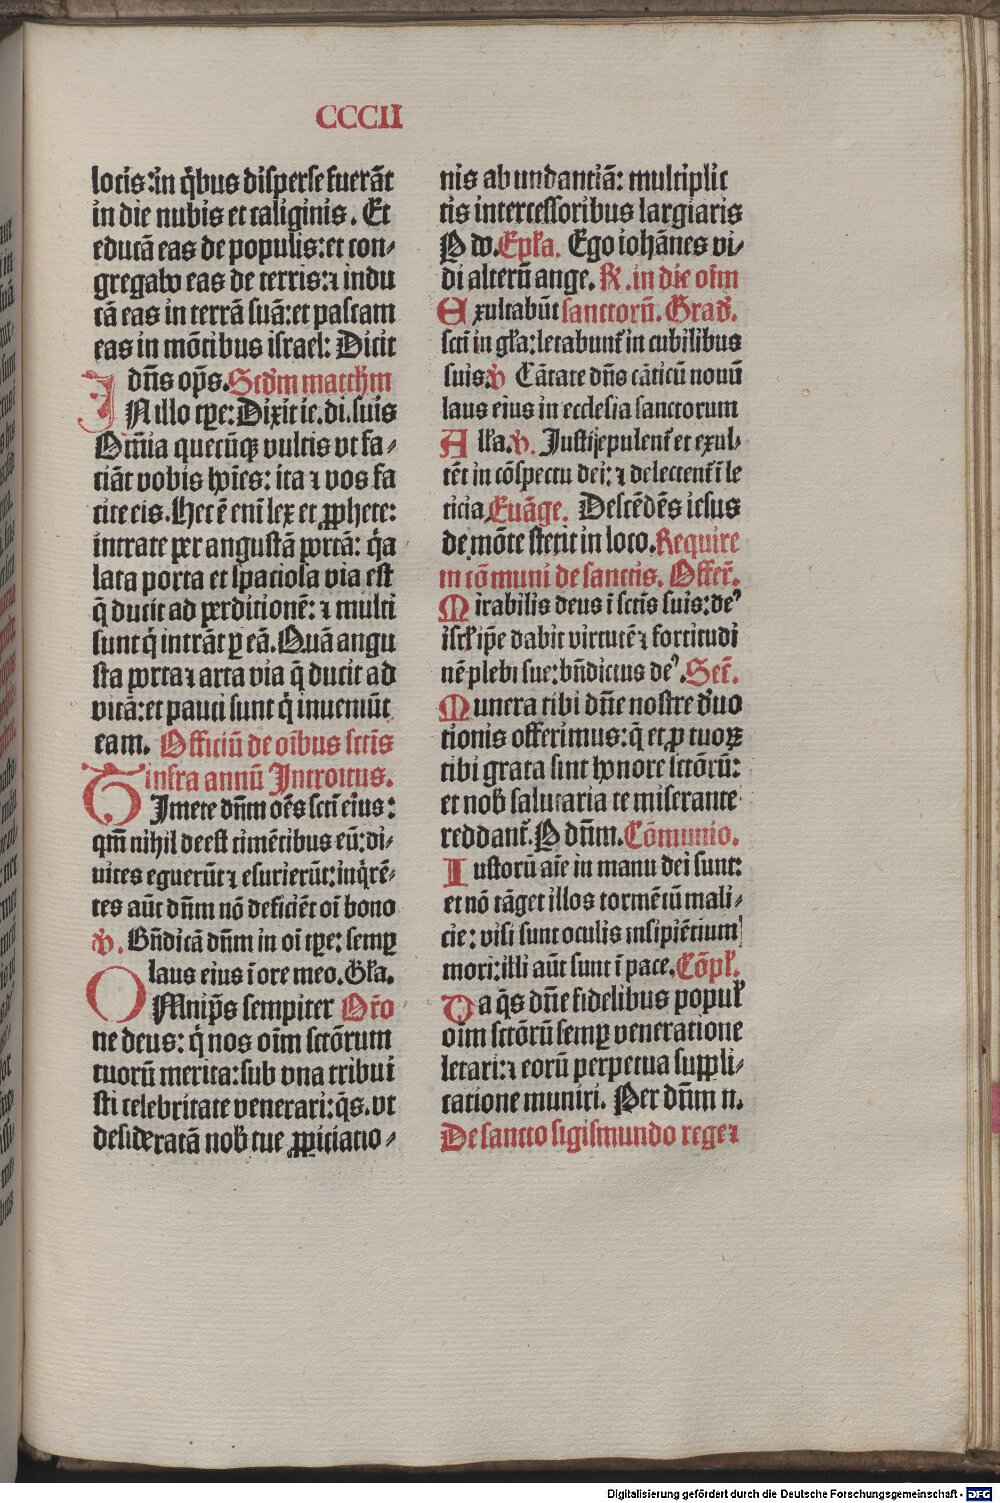 CCCII
locis:in q̄bus disperse fuerāt
in die nubis et caliginis. Et
educā eas de populis:et con-
gregabo eas de terris:⁊ indu
cā eas in terrā suā:et pascam
eas in mōtibus israel: Dicit
dn̄s op̄s. Scd̄m matthm
IN illo tp̄e: Dixit ie.di.suis
Om̄ia quecūqꝫ vultis vt fa-
ciāt vobis hoīes: ita ⁊ vos fa
cite eis. Hec ē enī lex et ꝓphete:
intrate per angustā portā: q̄a
lata porta et spaciosa via est
q̄ ducit ad perditionē: ⁊ multi
sunt q̄ intrāt ꝑ eā. Quā angu
sta porta ⁊ arta via q̄ ducit ad
vitā:et pauci sunt q̄ inueniūt
eam. Officiū de oībus sctīs
infra annū Introitus.
TImete dn̄m oēs sctī eius:
qm̄ nihil deest timētibus eū:di-
uites eguerūt ⁊ esurierūt:inq̄rē-
tes aūt dn̄m nō deficiēt oī bono
℣. Bn̄dicā dn̄m in oī tp̄e: semꝑ
laus eius ī ore meo. Gl̄a.
OMnip̄s sempiter Or̄o
ne deus: q̄ nos oīm sctōrum
tuorū merita:sub vna tribui
sti celebritate venerari:q̄s.vt
desideratā nob̄ tue ꝓpiciatio-
nis abundantiā: multiplic
tis intercessoribus largiaris
P do. Epl̄a. Ego iohānes vi-
di alterū ange. R. in die oīm
Exultabūt sanctorū. Grad̄.
sctī in gl̄a:letabunt̄ in cubilibus
suis. ℣ Cātate dn̄o cāticū nouū
laus eius in ecclesia sanctorum
All̄a. ℣. Justi epulent̄ et exul-
tēt in cōspectu dei: ⁊ delectent̄ ī le
ticia Euāge. Descēdēs iesus
de mōte stetit in loco. Require
in cōmuni de sanctis. Offer̄.
Mirabilis deus ī sctīs suis:de⁹
isrl̄ ip̄e dabit virtutē ⁊ fortitudi
nē plebi sue:bn̄dictus de⁹. Secr̄.
Munera tibi dn̄e nostre d̓uo
tionis offerimus:q̄ et ꝓ tuoꝝ
tibi grata sint honore sctōrū:
et nob̄ salutaria te miserante
reddant̄. P dn̄m. Cōmunio.
Iustorū aīe in manu dei sunt:
et nō tāget illos tormētū mali-
cie: visi sunt oculis insipiētium
mori:illi aūt sunt ī pace. Cōpl̄.
Da q̄s dn̄e fidelibus popul̄
oīm sctōrū semꝑ veneratione
letari:⁊ eorū perpetua suppli-
catione muniri. Per dn̄m n.
De sancto sigismundo rege ⁊
Digitalisierung gefördert durch die Deutsche Forschungsgemeinschaft - DFG